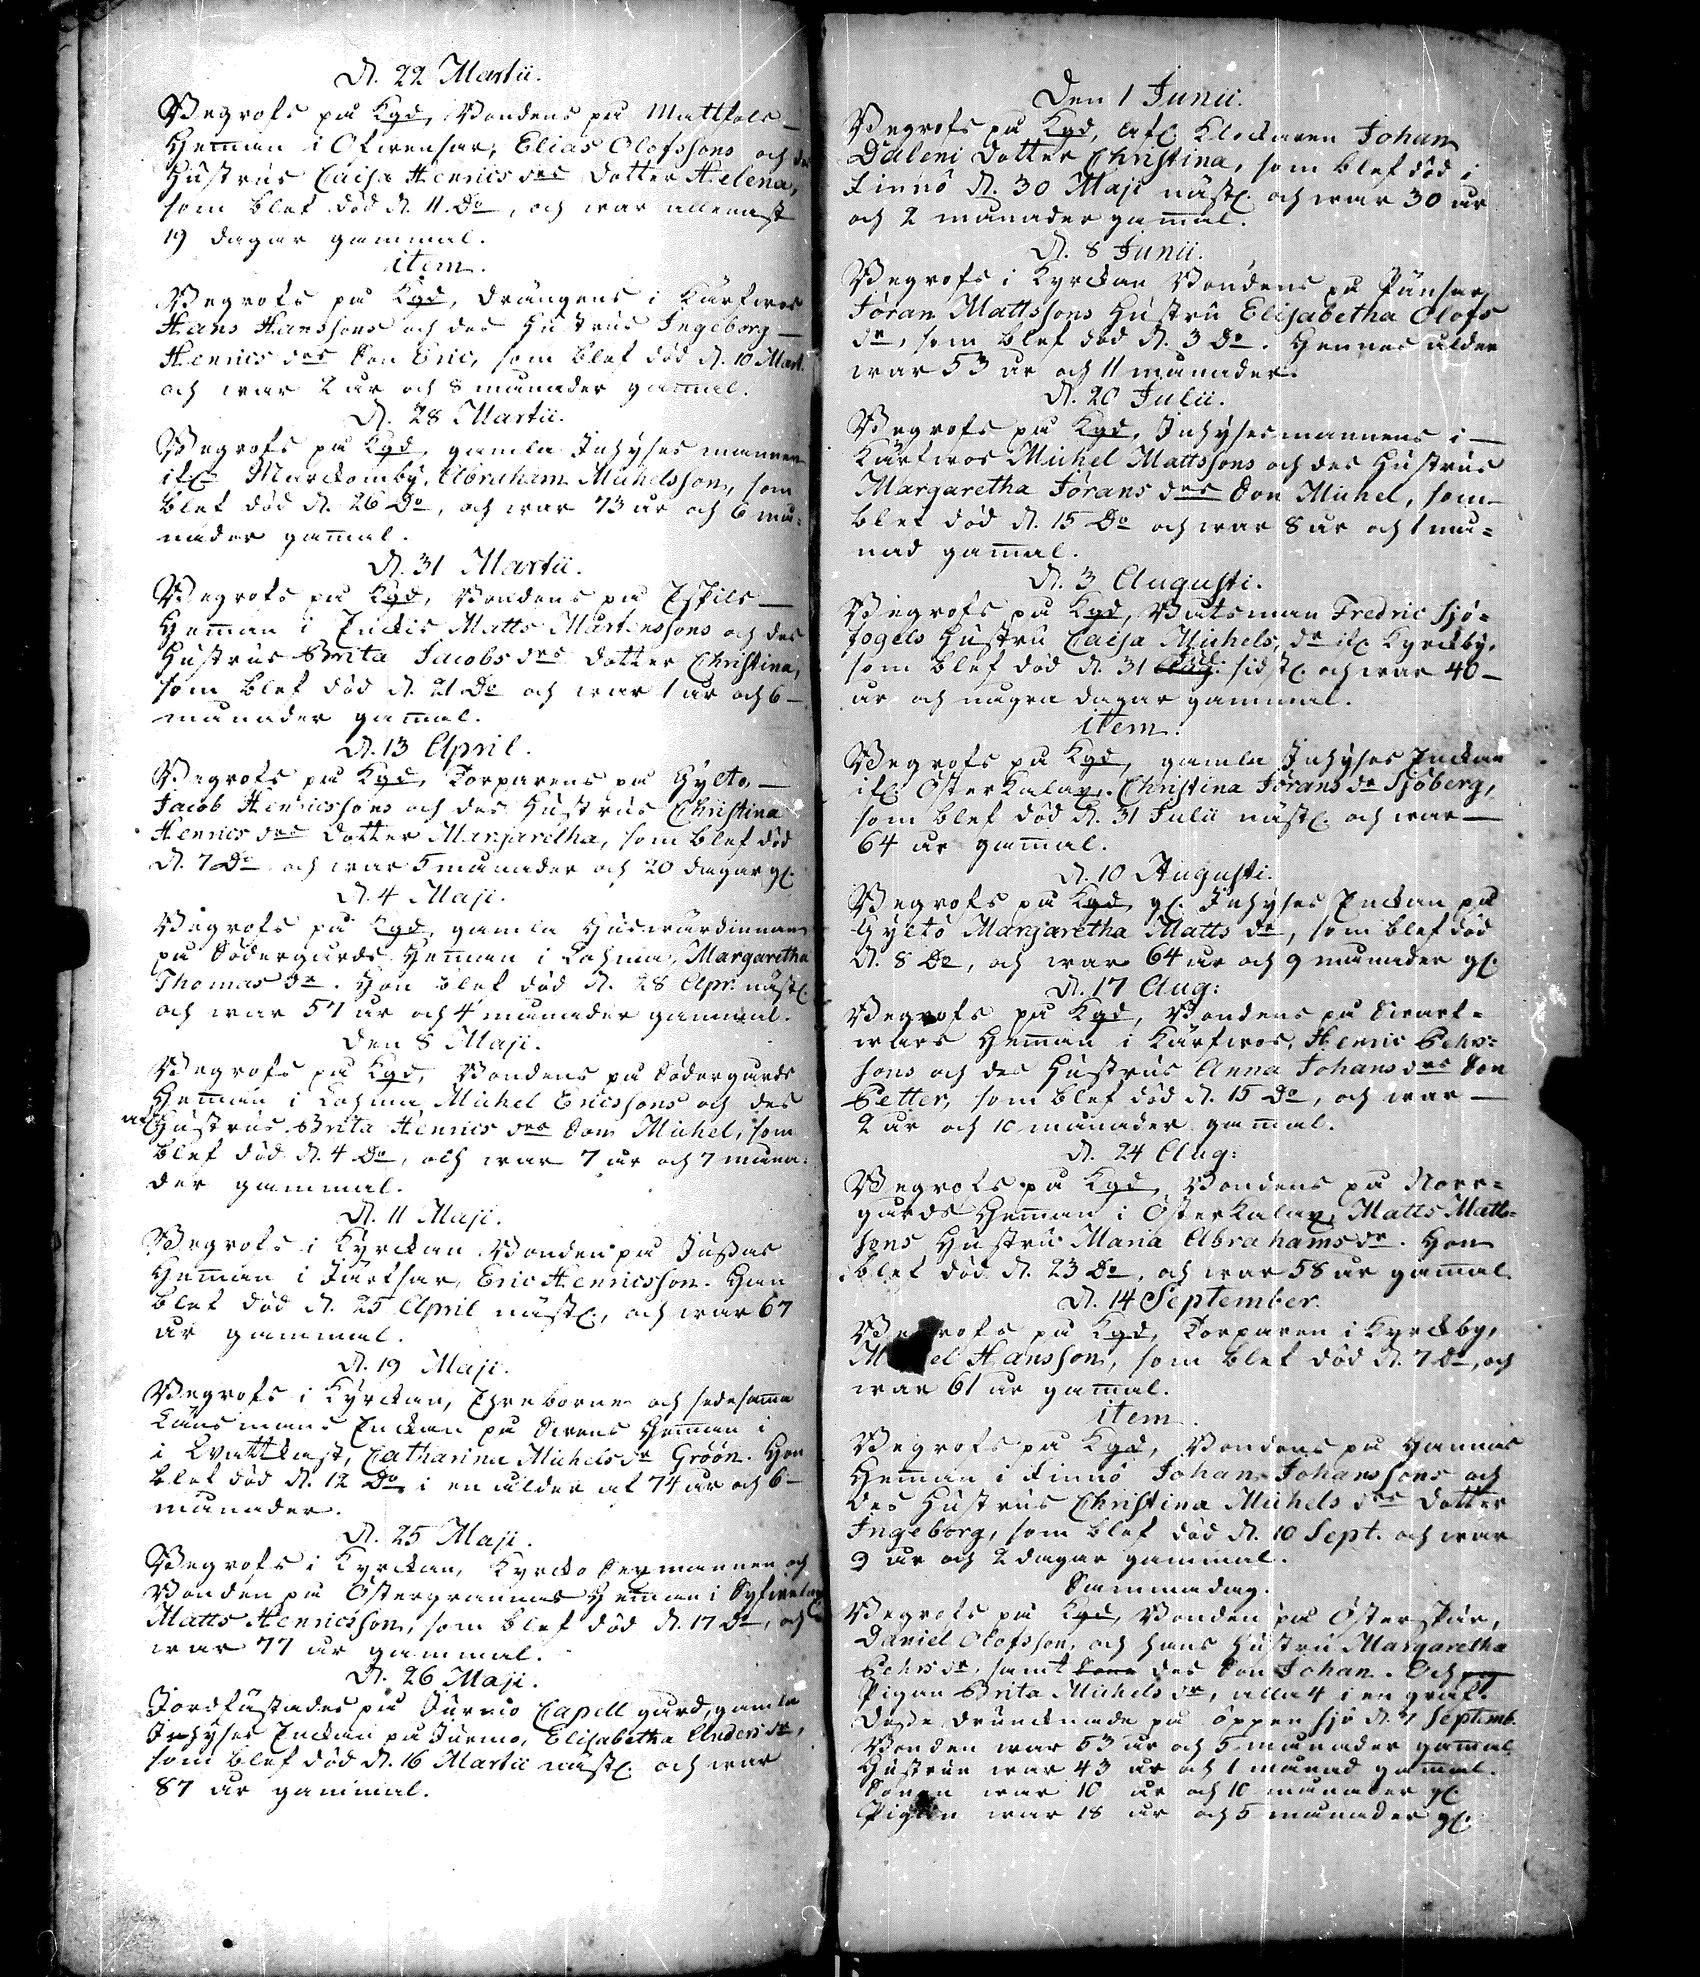 D. 22 Martii.
Begrofs på Kgd, Bondens på Mattfols
Hemman i Ofvensar, Elias Olofssons och des
Hustrus Caisa Henrics drs Dotter Helena,
som blef död d. 11 Do, och war allenast
19 dagar gammal.
item.
Begrofs på Kgd, Drängens i Kärfwos
Hans Hanssons och des Hustrus Ingeborg
Henrics drs Son Eric, som blef död d. 10 Mart.
och war 2 år och 8 månader gammal.
D. 28 Martii.
Begrofs på Kgd, gamla Inhyses mannen
ifr Marckomby, Abraham Michelsson, som
blef död d. 26 Do, och war 73 år och 6 må-
nader gammal.
D. 31 Martii.
Begrofs på Kgd, Bondens på Espils
Hemman i Enckis Matts Mårtenssons och des
Hustrus Brita Jacobs drs Dotter Christina,
som blef död d. 21 Do och war 1 år och 6
månader gammal.
D. 13 April.
Begrofs på Kgd, Torparens på Gyltö,
Jacob Henricssons och des Hustrus Christina
Henrics drs Dotter Margaretha, som blef död
d. 7 Do och war 5 månader och 20 dagar gl.
D. 4 Maji.
Begrofs på Kgd, gamla Huswärdinnan
på Södergårds Hemman i Lohma, Margaretha
Thomas dr. Hon blef död d. 28 Apr. nästl.
och war 57 år och 4 månader gammal.
Den 8 Maji.
Begrofs på Kgd, Bondens på Södergårds
Hemman i Lohma Michel Ericssons och des
Hustrus Brita Henrics drs Son Michel, som
blef död d. 4 Do, och war 7 år och 7 måna-
der gammal.
D. 11 Maji.
Begrofs i Kyrckan Bonden på Jussas
Hemman i Järfsar, Eric Henricsson. Han
blef död d. 25 April nästl., och war 67
år gammal.
D. 19 Maji.
Begrofs i Kyrckan, Ehreborne och sedesamma
Länsmans Enckan på Svens Hemman i
i Qvattkast, Catharina Michels dr Gröön. Hon
blef död d. 12 Do, i en ålder af 74 år och 6
månader.
D. 25 Maji.
Begrofs i Kyrckan, Kyrcko Sexmannen och
Bonden på Östergrannas Hemman i
Matts Henricsson, som blef död d. 17 Do, och
war 77 år gammal.
D. 26 Maji.
Jordfästades på Jurmo Capell gård, gamla
Inhyses Enckan på Jurmo, Elisabetha Anders dr,
som blef död d. 16 Martii nästl. och war
87 år gammal.
Den 1 Junii.
Begrofs på Kgd, afl. Klockaren Johan
Daleni Dotter Christina, som blef död i
Finnö d. 30 Maji nästl. och war 30 år
och 2 månader gammal.
D. 8 Junii.
Begrofs i Kyrckan Bondens på Pänsar
Jöran Mattssons Hustru Elisabetha Olofs
dr, som blef död d. 3 Do. Hennes ålder
war 53 år och 11 månader.
D. 20 Julii.
Begrofs på Kgd, Inhysesmannens i
Kärfwos Michel Mattssons och des Hustrus
Margaretha Jörans drs Son Michel, som
blef död d. 15 Do och war 8 år och 1 må-
nad gammal.
D. 3 Augusti.
Begrofs på Kgd, Båtsman Fredric Sjö-
fogels Hustru Caisa Michels dr ifr Kyrckby,
som blef död d. 31 Aug: sidstl. och war 40
år och några dagar gammal.
item.
Begrofs på Kgd, gamla Inhyses Enckan
ifr Österkalax, Christina Jörans dr Sjöberg,
som blef död d. 31 Julii nästl. och war
64 år gammal.
D. 10 Augusti.
Begrofs på Kgd, gl. Inhyses Enckan på
Gyltö Margaretha Matts dr, som blef död
d. 8 Do, och war 64 år och 9 månader gl.
D. 17 Aug:
Begrofs på Kgd, Bondens på Swart-
Hemman i Kärfwos, Henric Pehrs-
sons och des Hustrus Anna Johans drs Son
Petter, som blef död d. 15 Do, och war
2 år och 10 månader gammal.
D. 24 Aug:
Begrofs på Kgd, Bondens på Norr-
gårds Hemman i Österkalax, Matts Matts-
sons Hustru Maria Abrahams dr. Hon
blef död d. 23 Do, och war 58 år gammal.
D. 14 September.
Begrofs på Kgd, Torparen i Kyrckby,
Hansson, som blef död d. 7 Do, och
war 61 år gammal.
item.
Begrofs på Kgd, Bondens på Hannus
Hemman i Finnö Johan Johanssons och
des Hustrus Christina Michels drs Dotter
Ingeborg, som blef död d. 10 Sept. och war
9 år och 2 dagar gammal.
Samma dag.
Begrofs på Kgd, Bonden på Österskär,
Daniel Olofsson, och hans Hustru Margaretha
Pehrs dr, samt des Son Johan. Och
Pigan Brita Michels dr, alla 4 i en graf.
Desse drunknade på öppen sjö d. 7 Septemb.
Bonden war 53 år och 5 månader gammal
Hustrun war 43 år och 1 månad gammal.
Sonen war 10 år och 10 månader gl.
Pigan war 18 år och 5 månader gl.